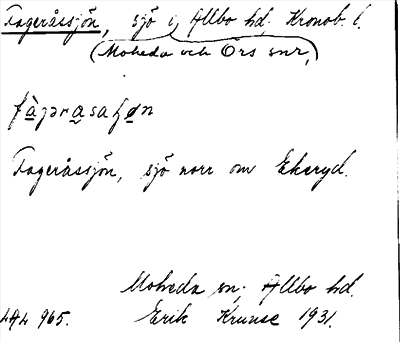 Fageråssjön, sjö i Allbo hd. Kronob. l.
(Moheda och Örs snr,)
Fageråssjön, sjö norr om Ekeryd.
Moheda sn; Allbo hd.
Erik Kruuse 1931.
965.